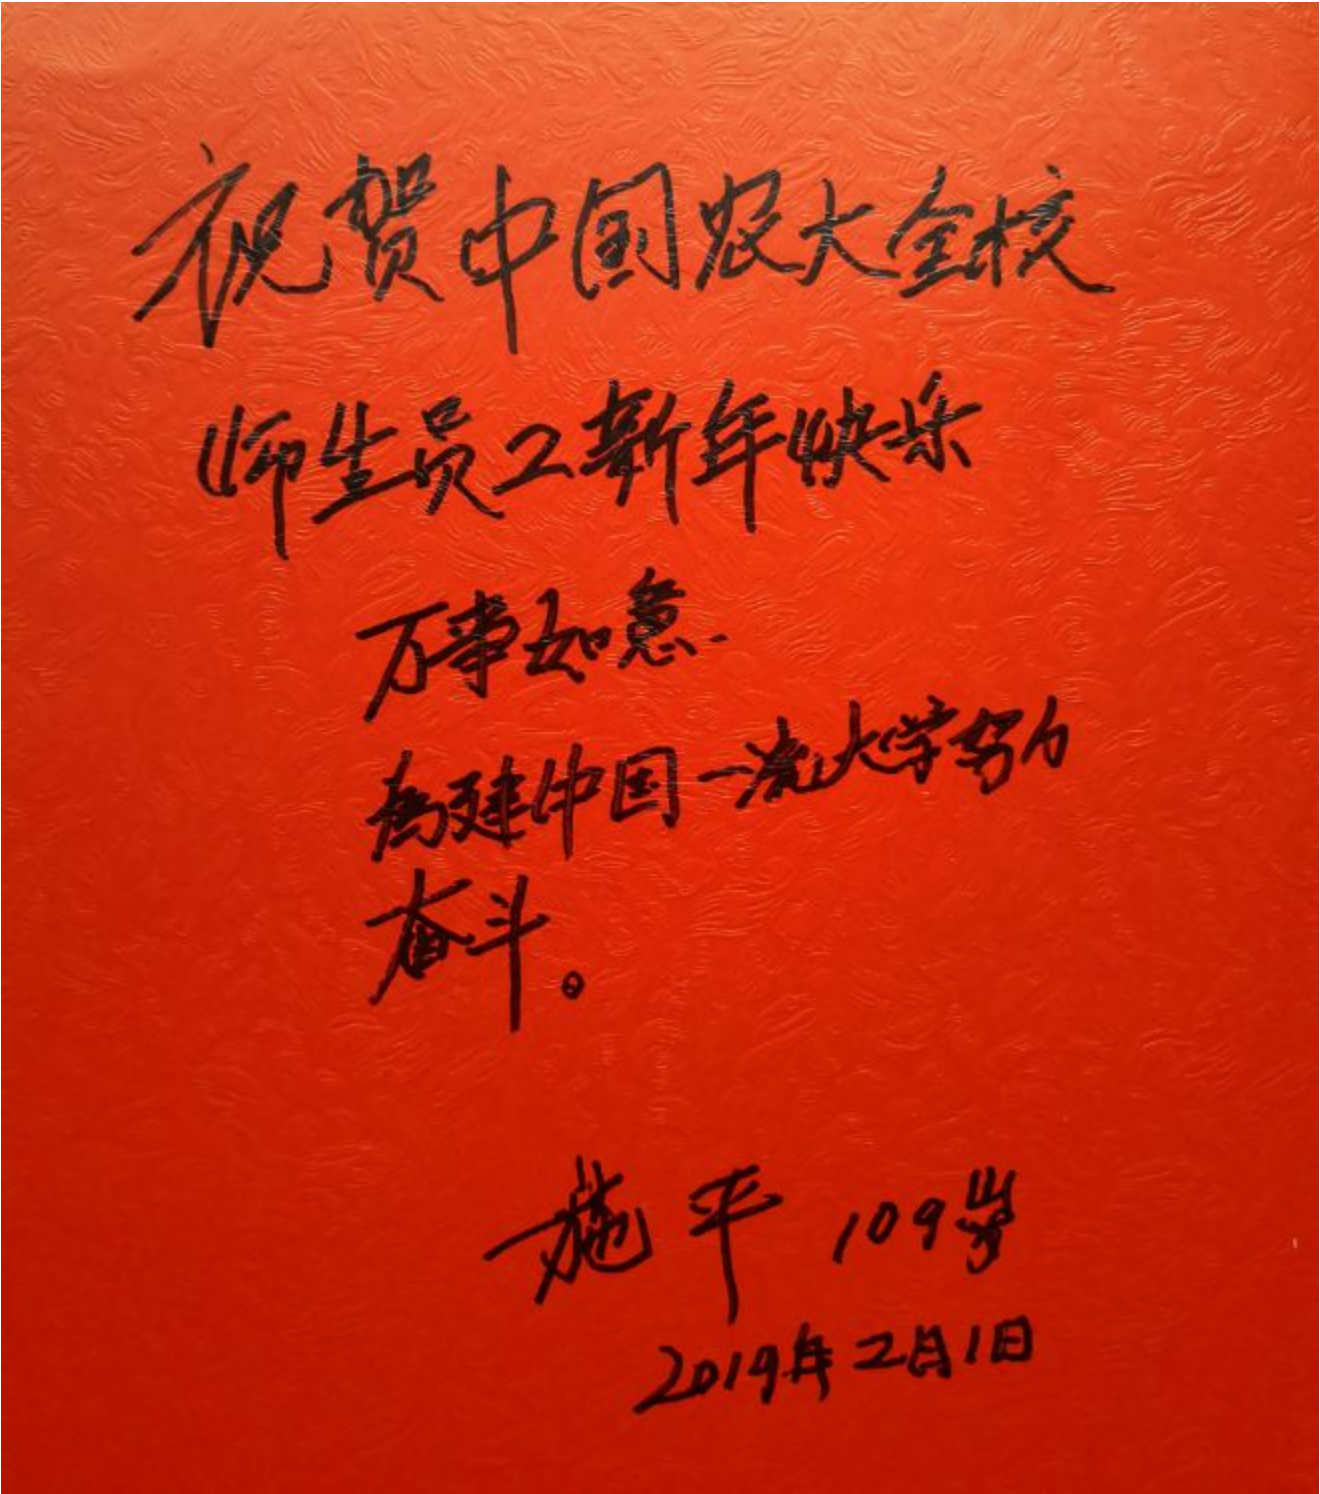 祝贺中国农大全校
师生员工新年快乐
万事如意
为建中国一流大学努力
奋斗。
施平 109岁
2019年2月1日